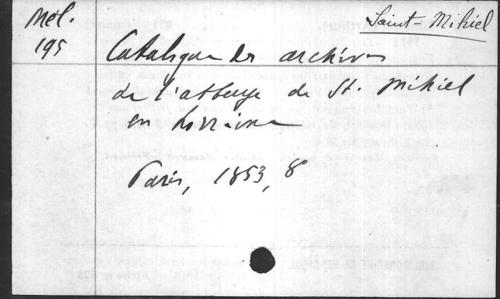 Mél.
195
Saint-Mihiel
Catalogue des archives
de l'abbaye de St. Mihiel
en Lorraine
Paris, 1853, 8°